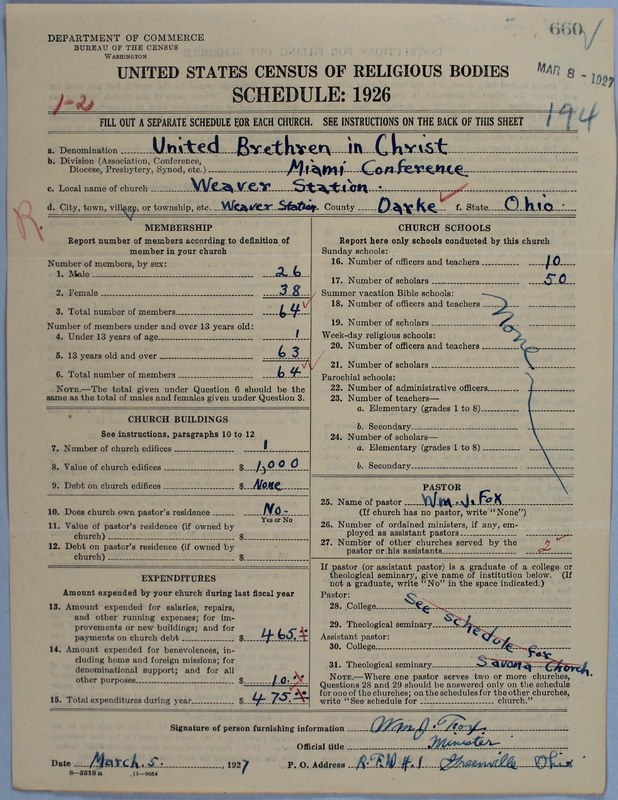 DEPARTMENT OF COMMERCE
BUREAU OF THE CENSUS
WASHINGTON
660
MAR 8 - 1927
UNITED STATES CENSUS OF RELIGIOUS BODIES
SCHEDULE: 1926
1-2
194
FILL OUT A SEPARATE SCHEDULE FOR EACH CHURCH. SEE INSTRUCTIONS ON THE BACK OF THIS SHEET
a. Denomination United Brethren in Christ
b. Division (Association, Conference, Diocese, Presbytery, Synod, etc.) Miami Conference
c. Local name of church Weaver Station.
d. City, town, village, or township, etc. Weaver Station. County Darke f. State Ohio.
R.
MEMBERSHIP
Report number of members according to definition of
member in your church
Number of members, by sex:
1. Male 26
2. Female 38
3. Total number of members 64
Number of members under and over 13 years old:
4. Under 13 years of age 1
5. 13 years old and over 63
6. Total number of members 64
NOTE.—The total given under Question 6 should be the
same as the total of males and females given under Question 3.
CHURCH BUILDINGS
See instructions, paragraphs 10 to 12
7. Number of church edifices 1
8. Value of church edifices $ 1,000
9. Debt on church edifices $ None
10. Does church own pastor's residence? No.
Yes or No
11. Value of pastor's residence (if owned by
church) $
12. Debt on pastor's residence (if owned by
church) $
EXPENDITURES
Amount expended by your church during last fiscal year
13. Amount expended for salaries, repairs,
and other running expenses; for im-
provements or new buildings; and for
payments on church debt $ 465.
14. Amount expended for benevolences, in-
cluding home and foreign missions; for
denominational support; and for all
other purposes $ 10.
15. Total expenditures during year $ 475.
CHURCH SCHOOLS
Report here only schools conducted by this church
Sunday schools:
16. Number of officers and teachers 10
17. Number of scholars 50
Summer vacation Bible schools:
18. Number of officers and teachers
19. Number of scholars
None
Week-day religious schools:
20. Number of officers and teachers
21. Number of scholars
Parochial schools:
22. Number of administrative officers
23. Number of teachers—
a. Elementary (grades 1 to 8)
b. Secondary
24. Number of scholars—
a. Elementary (grades 1 to 8)
b. Secondary
PASTOR
25. Name of pastor Wm. J. Fox
(If church has no pastor, write "None")
26. Number of ordained ministers, if any, em-
ployed as assistant pastors
27. Number of other churches served by the
pastor or his assistants 2
If pastor (or assistant pastor) is a graduate of a college or
theological seminary, give name of institution below. (If
not a graduate, write "No" in the space indicated.)
Pastor:
28. College
29. Theological seminary
See schedule for
Assistant pastor:
30. College
31. Theological seminary Savona Church.
NOTE.—Where one pastor serves two or more churches,
Questions 28 and 29 should be answered only on the schedule
for one of the churches; on the schedules for the other churches,
write "See schedule for church."
Signature of person furnishing information Wm J. Fox.
Official title Minister
Date March. 5. 1927 P. O. Address R.F.D #.1 Greenville Ohio
8—5518 a 11—9054